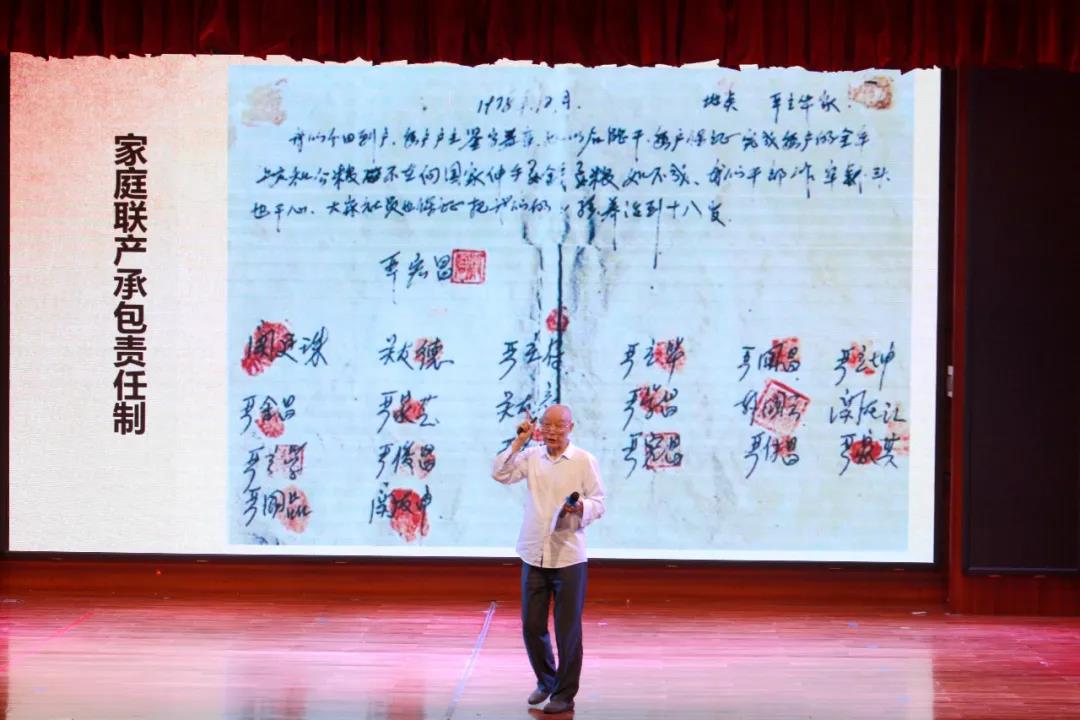 家庭联产承包责任制
1978年12月. 地点 严立华家
我们分田到户,每户户主签字盖章,如以后能干,每户保证完成每户的全年
上交和公粮 不在向国家伸手要钱要粮 如不成,我们干部作牢刹头
也干心,大家社员也保证把我们的小孩养活到十八岁
严宏昌
关廷珠 关友德 严立符 严立华 严国昌 严立坤
严金昌 严家芝 关友 严学昌 韩国云 关友江
严立学 严俊昌 严宏昌 严付昌 严家其
严国品 关友申